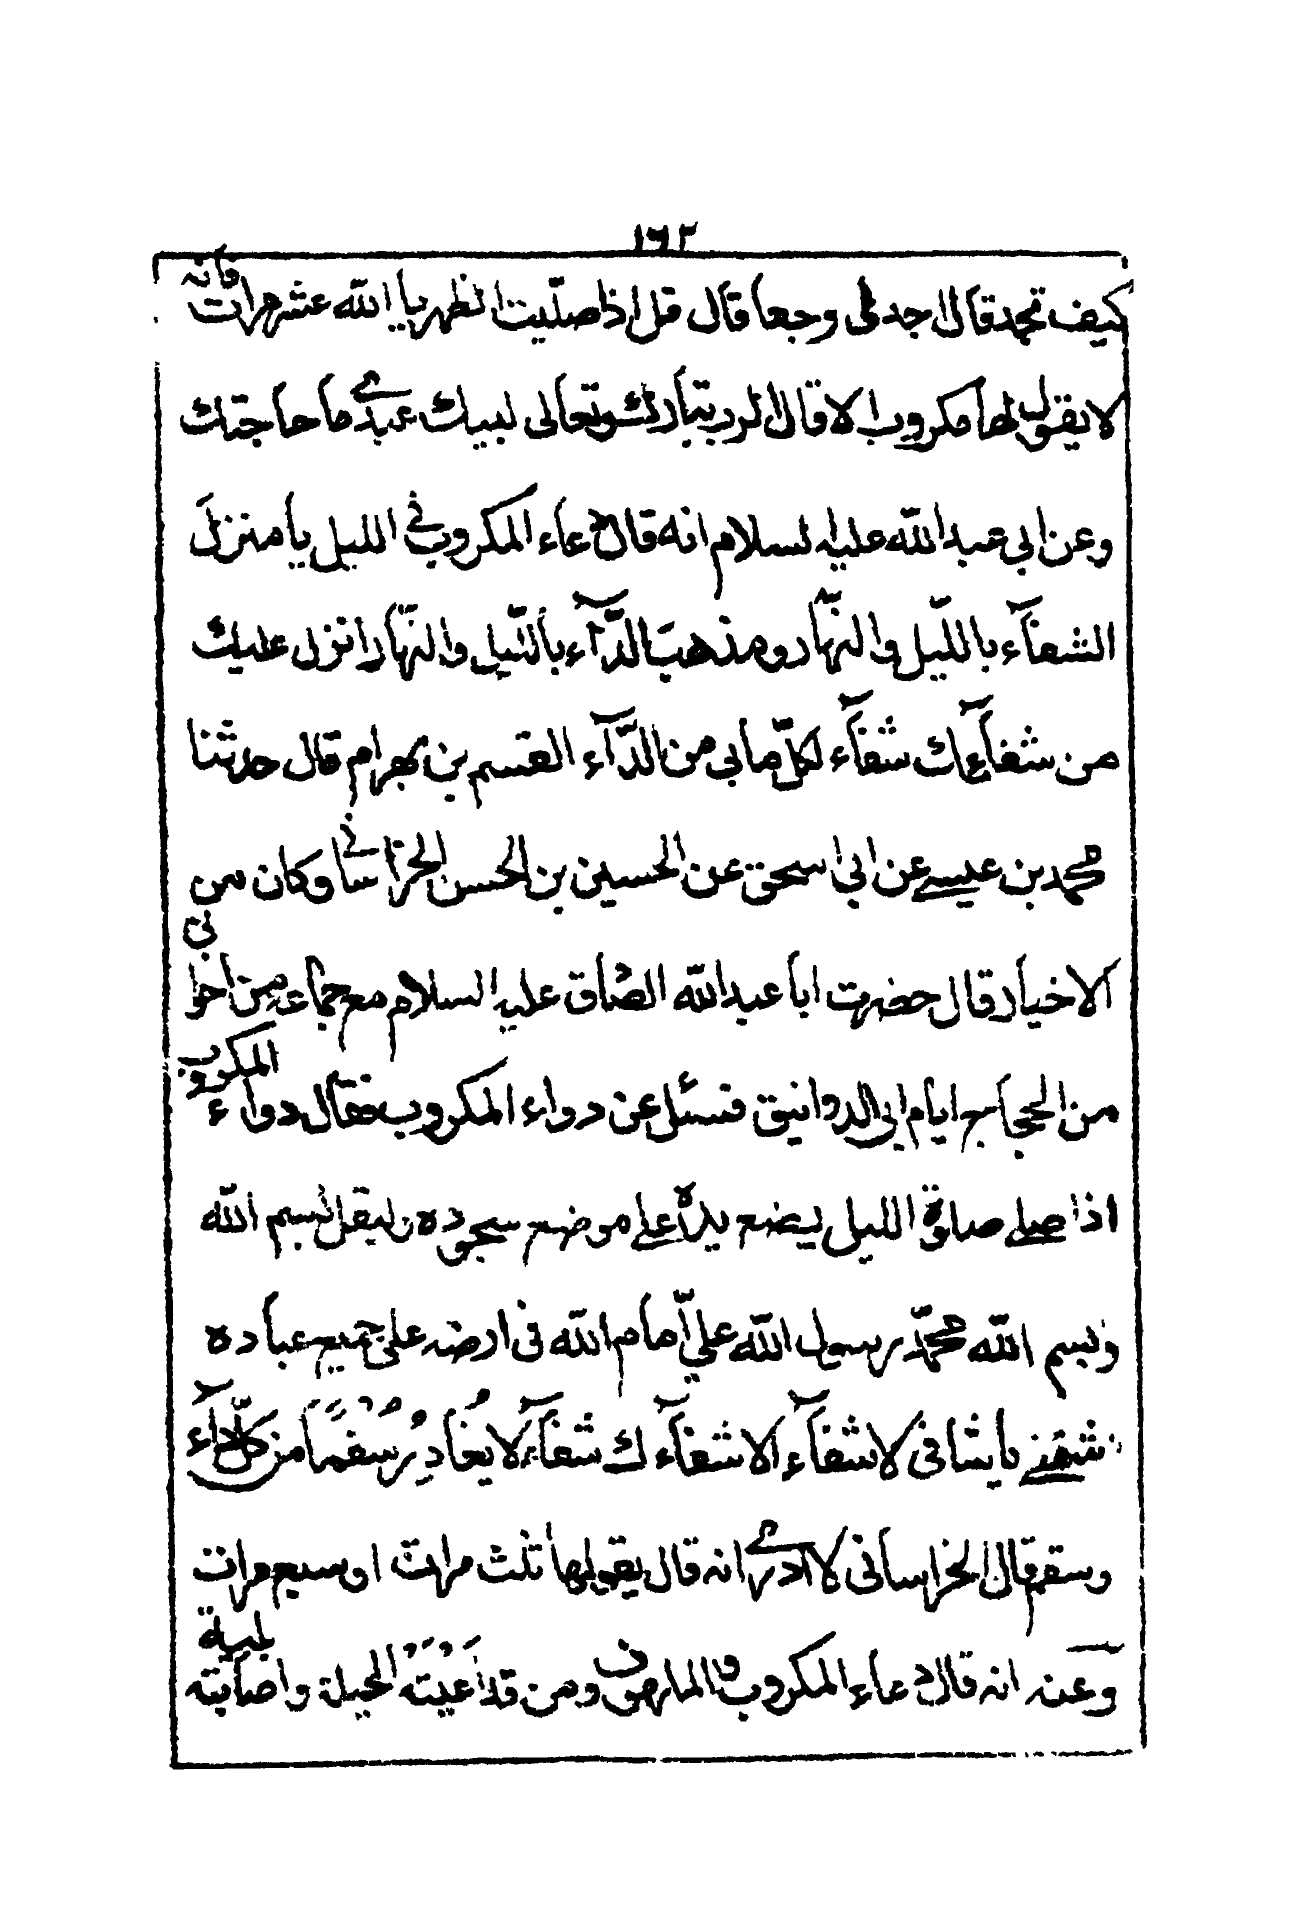 ١٦٢
كيف تجدك قال اجدني وجعا قال قل اذا صليت الظهر يا الله عشر مرات فانه
لا يقولها مكروب الا قال الرب تبارك وتعالى لبيك عبدي ما حاجتك
وعن ابي عبد الله عليه السلام انه قال دعاء المكروب في الليل يا منزل
الشفآء بالليل والنهار ومذهب الدّآء بالليل والنهار انزل عليك
من شفآءك شفآء لكلّ ما بي من الدّآء القسم بن بهرام قال حدثنا
محمد بن عيسى عن ابي اسحق عن الحسين بن الحسن الخراساني وكان من
الاخيار قال حضرت ابا عبد الله الصادق عليه السلام مع جماعه من اخواني
من الحجاج ايام ابي الدوانيق فسئل عن دواء المكروب فقال دواء المكروب
اذا صلى صلوة الليل يضع يده على موضع سجوده وليقل بسم الله
وبسم الله محمّد رسول الله علي امام الله في ارضه على جميع عباده
اشفني يا شافي لا شفآء الا شفآءك شفآء لا يُغادِرُ سُقمًا من كلّ دآء
وسقم قال الخراساني لا ادري انه قال يقولها ثلث مرات او سبع مرات
وعنه انه قال دعاء المكروب والملهوف ومن قد اَعْيَتْهُ الحيلة واصابته بلية